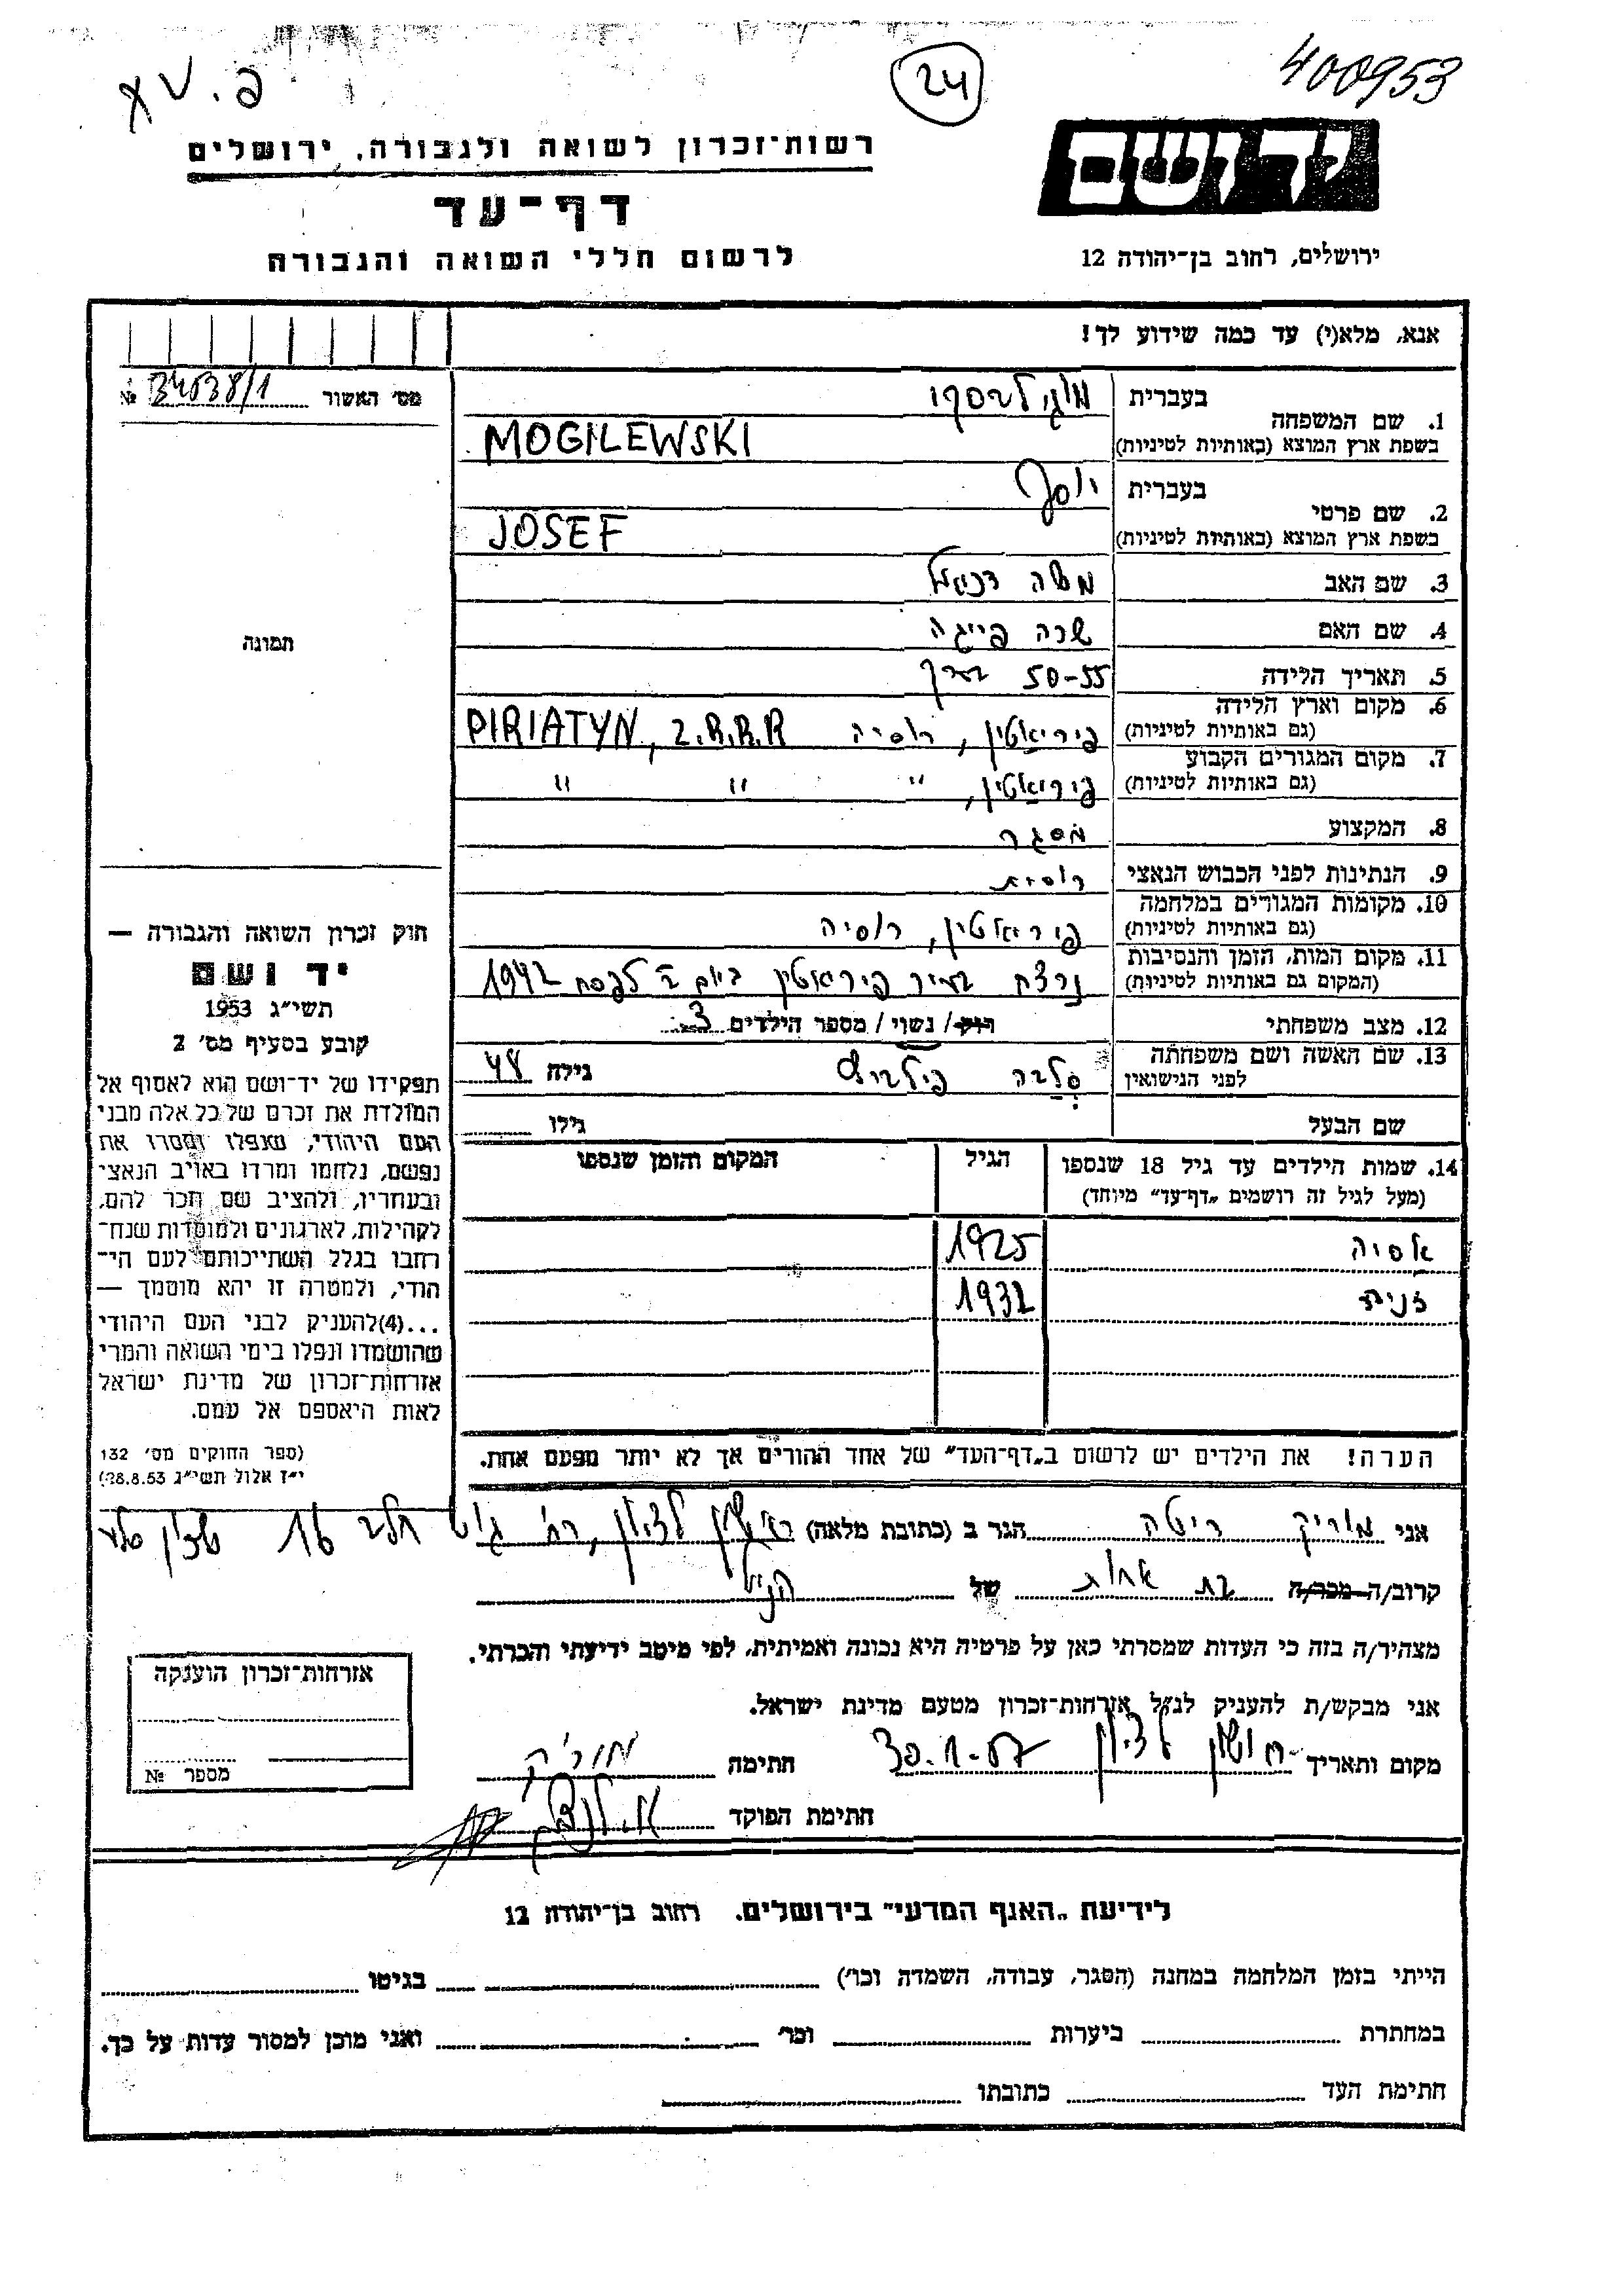 400953
24
פ.
רשות־זכרון לשואה ולגבורה, ירושלים
דף־עד
לרשום חללי השואה והגבורה
יד ושם
ירושלים, רחוב בן־יהודה 12
אנא, מלא(י) עד כמה שידוע לך!
מס׳ האשור 34538/1 №
תמונה
1. שם המשפחה
בעברית מוגילבסקי
בשפת ארץ המוצא (באותיות לטיניות) MOGILEWSKI
2. שם פרטי
בעברית יוסף
בשפת ארץ המוצא (באותיות לטיניות) JOSEF
3. שם האב משה
4. שם האם שרה פייגה
5. תאריך הלידה 50-55 בערך
6. מקום וארץ הלידה
(גם באותיות לטיניות) פיריאטין, רוסיה PIRIATYN, Z.R.R.R
7. מקום המגורים הקבוע
(גם באותיות לטיניות) פיריאטין, " " "
8. המקצוע מסגר
9. הנתינות לפני הכבוש הנאצי רוסית
10. מקומות המגורים במלחמה
(גם באותיות לטיניות) פיריאטין, רוסיה
11. מקום המות, הזמן והנסיבות
(המקום גם באותיות לטיניות) נרצח בעיר פיריאטין ביום ב׳ לפסח 1942
12. מצב משפחתי רוק/ נשוי / מספר הילדים 3
13. שם האשה ושם משפחתה
לפני הנישואין גילה 48
שם הבעל גילו
14. שמות הילדים עד גיל 18 שנספו
(מעל לגיל זה רושמים „דף־עד״ מיוחד)
הגיל
המקום והזמן שנספו
אסיה 1925
1932
הערה! את הילדים יש לרשום ב„דף־העד״ של אחד ההורים אך לא יותר מפעם אחת.
חוק זכרון השואה והגבורה —
יד ושם
תשי״ג 1953
קובע בסעיף מס׳ 2
תפקידו של יד־ושם הוא לאסוף אל
המולדת את זכרם של כל אלה מבני
העם היהודי, שנפלו ומסרו את
נפשם, נלחמו ומרדו באויב הנאצי
ובעוזריו, ולהציב שם וזכר להם,
לקהילות, לארגונים ולמוסדות שנח־
רבו בגלל השתייכותם לעם הי־
הודי, ולמטרה זו יהא מוסמך —
...(4)להעניק לבני העם היהודי
שהושמדו ונפלו בימי השואה והמרי
אזרחות־זכרון של מדינת ישראל
לאות היאספם אל עמם.
(ספר החוקים מס׳ 132
י״ז אלול תשי״ג 28.8.53)
אני מוריק ריטה הגר ב (כתובת מלאה) ראשון לציון, רח׳ 16
קרוב/ה מכר/ה בת אחות של הנ״ל
מצהיר/ה בזה כי העדות שמסרתי כאן על פרטיה היא נכונה ואמיתית, לפי מיטב ידיעתי והכרתי.
אני מבקש/ת להעניק לנ״ל אזרחות־זכרון מטעם מדינת ישראל.
מקום ותאריך ראשון לציון חתימה מוריק
חתימת הפוקד
אזרחות־זכרון הוענקה
מספר №
לידיעת „האגף המדעי״ בירושלים. רחוב בן־יהודה 12
הייתי בזמן המלחמה במחנה (הסגר, עבודה, השמדה וכו׳) בגיטו
במחתרת ביערות וכו׳ ואני מוכן למסור עדות על כך.
חתימת העד כתובתו